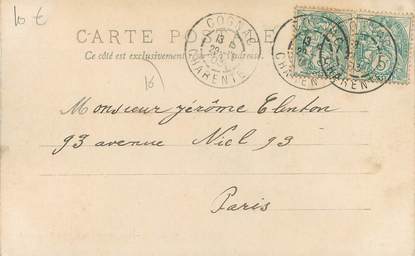 10 €
CARTE POSTALE
Ce côté est exclusivement réservé à l'adresse.
COGNAC
CHARENTE
5
Monsieur Jérôme Elenton
93 avenue Niel 93
Paris